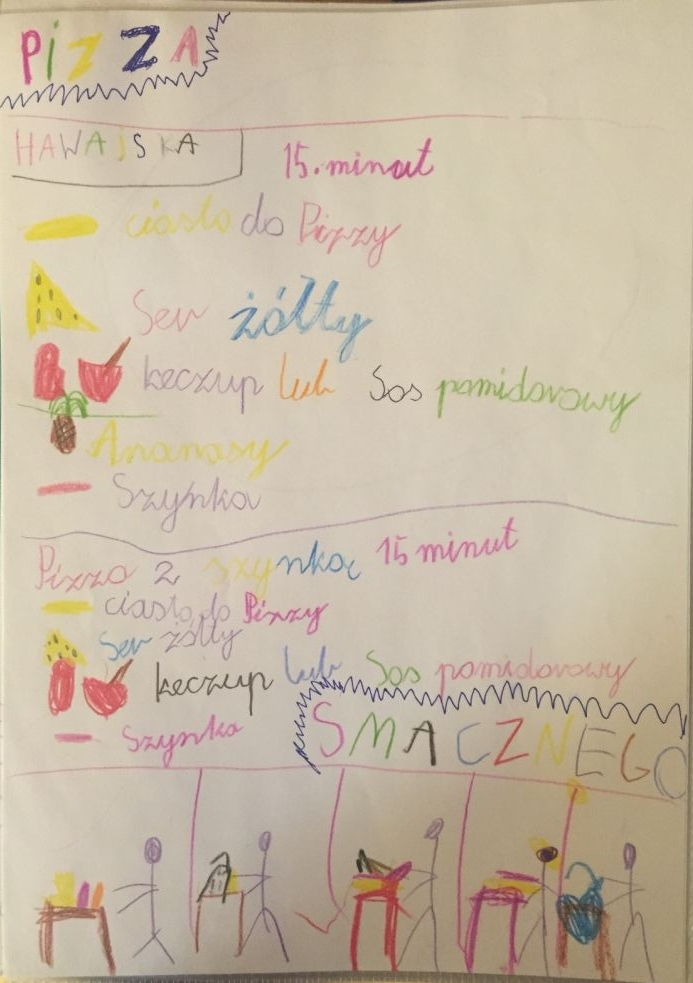 PiZZA
HAWAJSKA 15.minut
ciasto do Pizzy
Ser żółty
keczup lub Sos pomidorowy
Ananasy
Szynka
Pizza z szynką 15 minut
ciasto do Pizzy
Ser żółty
keczup lub Sos pomidorowy
Szynka
SMACZNEGO